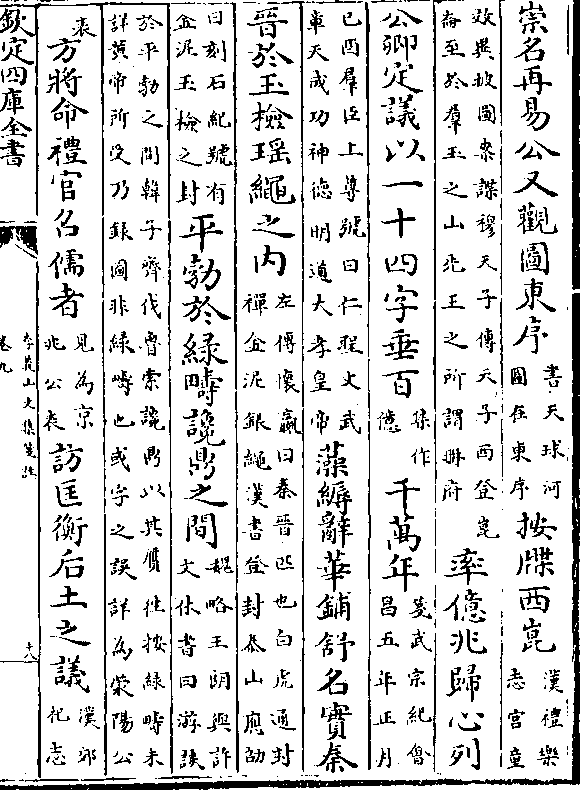 崇名再易公又觀圖東序
書天球河
圖在東序
按牒西崑
漢禮樂
志宮童
效異披圖案諜穆天子傳天子西登崑
崙至於羣玉之山先王之所謂冊府
率億兆歸心列
公卿定議以一十四字垂百
集作
億
千萬年
箋武宗紀會
昌五年正月
己酉羣臣上尊號曰仁聖文武
章天成功神德明道大孝皇帝
藻縟辭華鋪舒名實秦
晉於玉檢瑤繩之内
左傳懷嬴曰秦晉匹也白虎通封
禪金泥銀繩漢書登封泰山應劭
曰刻石紀號有
金泥玉檢之封
平勃於緑疇讒鼎之間
魏略王朗與許
文休書曰游談
於平勃之間韓子齊伐魯索讒鼎以其贋往按緑疇未
詳黄帝所受乃録圖非緑疇也或字之誤詳為滎陽公
表
方將命禮官召儒者
見為京
兆公表
訪匡衡后土之議
漢郊
祀志
欽定四庫全書
李義山文集箋註
卷九
十八